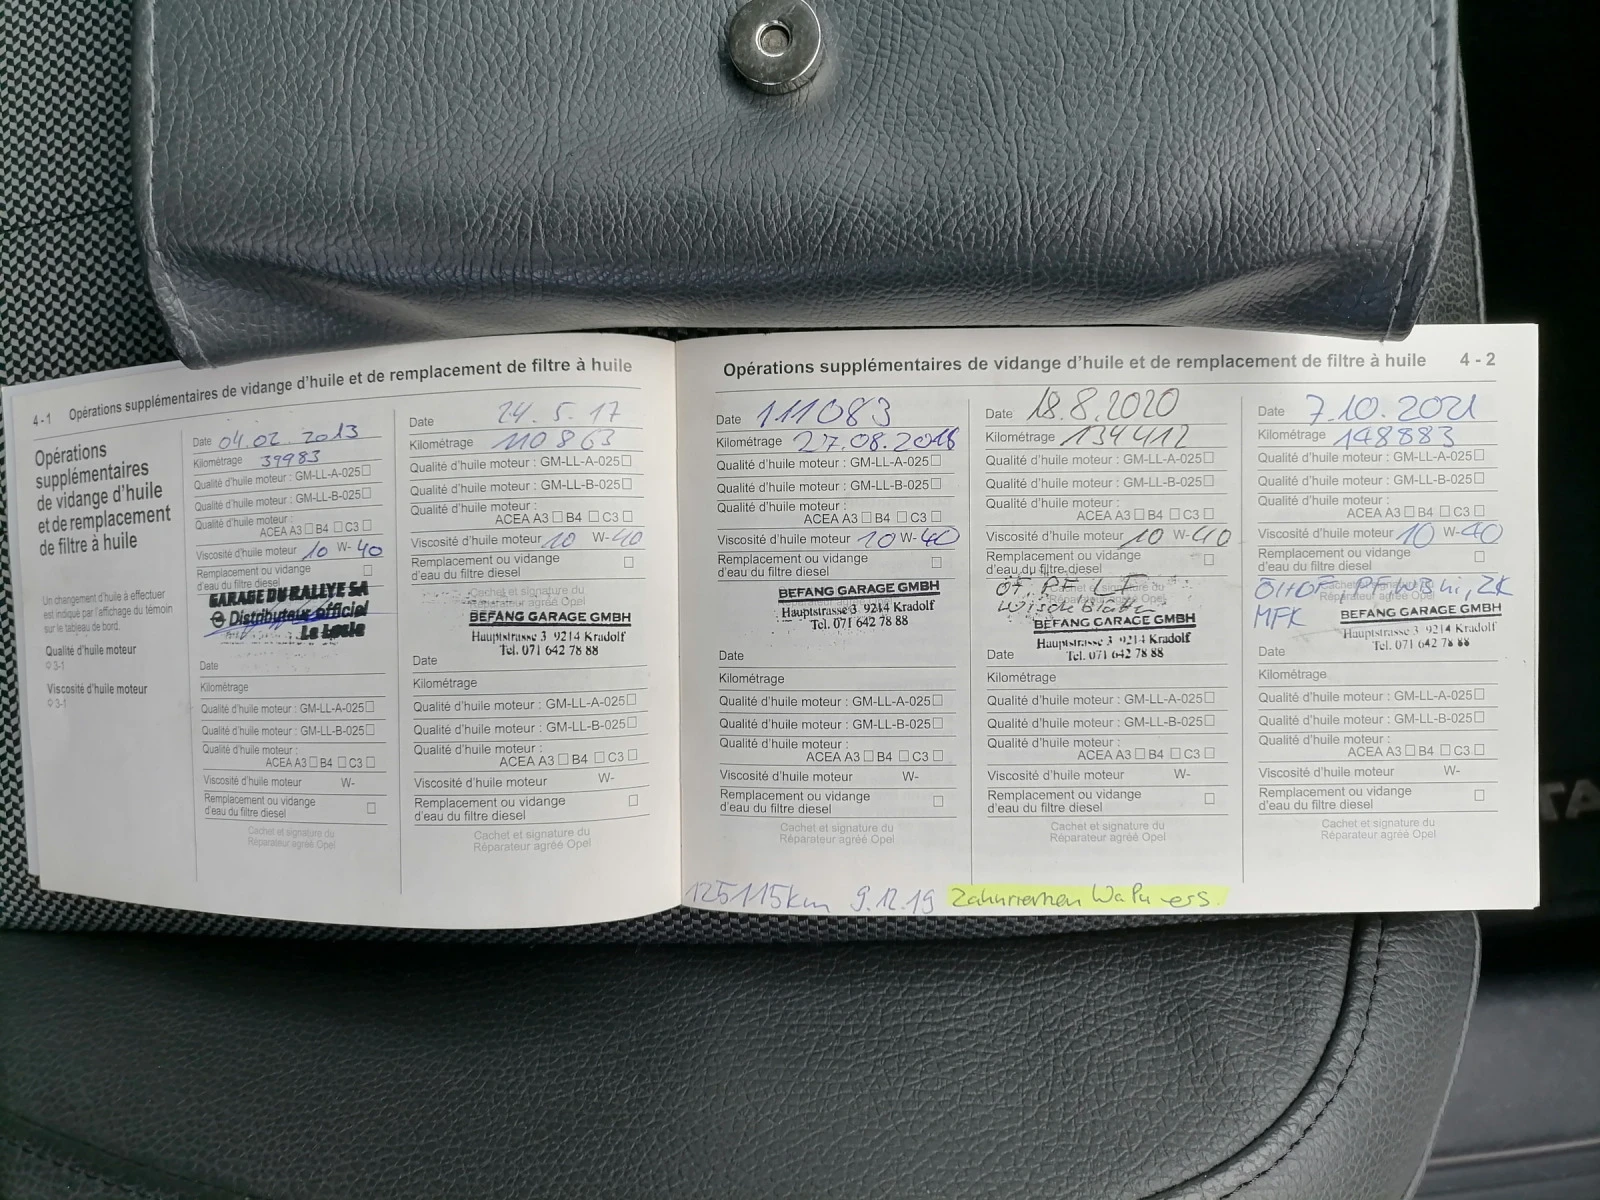 4 - 1 Opérations supplémentaires de vidange d'huile et de remplacement de filtre à huile
Opérations
supplémentaires
de vidange d'huile
et de remplacement
de filtre à huile
Un changement d'huile à effectuer
est indiqué par l'affichage du témoin
sur le tableau de bord.
Qualité d'huile moteur
3-1
Viscosité d'huile moteur
3-1
Date 04.02.2013
Kilométrage 39983
Qualité d'huile moteur : GM-LL-A-025
Qualité d'huile moteur : GM-LL-B-025
Qualité d'huile moteur :
ACEA A3 B4 C3
Viscosité d'huile moteur 10 W- 40
Remplacement ou vidange
d'eau du filtre diesel
GARAGE DU RALLYE SA
Distributeur officiel
Le Locle
Date
Kilométrage
Qualité d'huile moteur : GM-LL-A-025
Qualité d'huile moteur : GM-LL-B-025
Qualité d'huile moteur :
ACEA A3 B4 C3
Viscosité d'huile moteur W-
Remplacement ou vidange
d'eau du filtre diesel
Cachet et signature du
Réparateur agréé Opel
Date 24.5.17
Kilométrage 110863
Qualité d'huile moteur : GM-LL-A-025
Qualité d'huile moteur : GM-LL-B-025
Qualité d'huile moteur :
ACEA A3 B4 C3
Viscosité d'huile moteur 10 W-40
Remplacement ou vidange
d'eau du filtre diesel
Cachet et signature du
Réparateur agréé Opel
BEFANG GARAGE GMBH
Hauptstrasse 3 9214 Kradolf
Tel. 071 642 78 88
Date
Kilométrage
Qualité d'huile moteur : GM-LL-A-025
Qualité d'huile moteur : GM-LL-B-025
Qualité d'huile moteur :
ACEA A3 B4 C3
Viscosité d'huile moteur W-
Remplacement ou vidange
d'eau du filtre diesel
Cachet et signature du
Réparateur agréé Opel
Opérations supplémentaires de vidange d'huile et de remplacement de filtre à huile 4 - 2
Date 111083
Kilométrage 27.08.2018
Qualité d'huile moteur : GM-LL-A-025
Qualité d'huile moteur : GM-LL-B-025
Qualité d'huile moteur :
ACEA A3 B4 C3
Viscosité d'huile moteur 10 W-40
Remplacement ou vidange
d'eau du filtre diesel
BEFANG GARAGE GMBH
Hauptstrasse 3 9214 Kradolf
Tel. 071 642 78 88
Date
Kilométrage
Qualité d'huile moteur : GM-LL-A-025
Qualité d'huile moteur : GM-LL-B-025
Qualité d'huile moteur :
ACEA A3 B4 C3
Viscosité d'huile moteur W-
Remplacement ou vidange
d'eau du filtre diesel
Cachet et signature du
Réparateur agréé Opel
Date 18.8.2020
Kilométrage 134412
Qualité d'huile moteur : GM-LL-A-025
Qualité d'huile moteur : GM-LL-B-025
Qualité d'huile moteur :
ACEA A3 B4 C3
Viscosité d'huile moteur 10 W-40
Remplacement ou vidange
d'eau du filtre diesel
ÖF, PF, LF
Wischblätter
BEFANG GARAGE GMBH
Hauptstrasse 3 9214 Kradolf
Tel. 071 642 78 88
Date
Kilométrage
Qualité d'huile moteur : GM-LL-A-025
Qualité d'huile moteur : GM-LL-B-025
Qualité d'huile moteur :
ACEA A3 B4 C3
Viscosité d'huile moteur W-
Remplacement ou vidange
d'eau du filtre diesel
Cachet et signature du
Réparateur agréé Opel
Date 7.10.2021
Kilométrage 148883
Qualité d'huile moteur : GM-LL-A-025
Qualité d'huile moteur : GM-LL-B-025
Qualité d'huile moteur :
ACEA A3 B4 C3
Viscosité d'huile moteur 10 W-40
Remplacement ou vidange
d'eau du filtre diesel
PF, ZK
MFK
BEFANG GARAGE GMBH
Hauptstrasse 3 9214 Kradolf
Tel. 071 642 78 88
Date
Kilométrage
Qualité d'huile moteur : GM-LL-A-025
Qualité d'huile moteur : GM-LL-B-025
Qualité d'huile moteur :
ACEA A3 B4 C3
Viscosité d'huile moteur W-
Remplacement ou vidange
d'eau du filtre diesel
Cachet et signature du
Réparateur agréé Opel
125115km 9.12.19 Zahnriemen WaPu ers.
TA